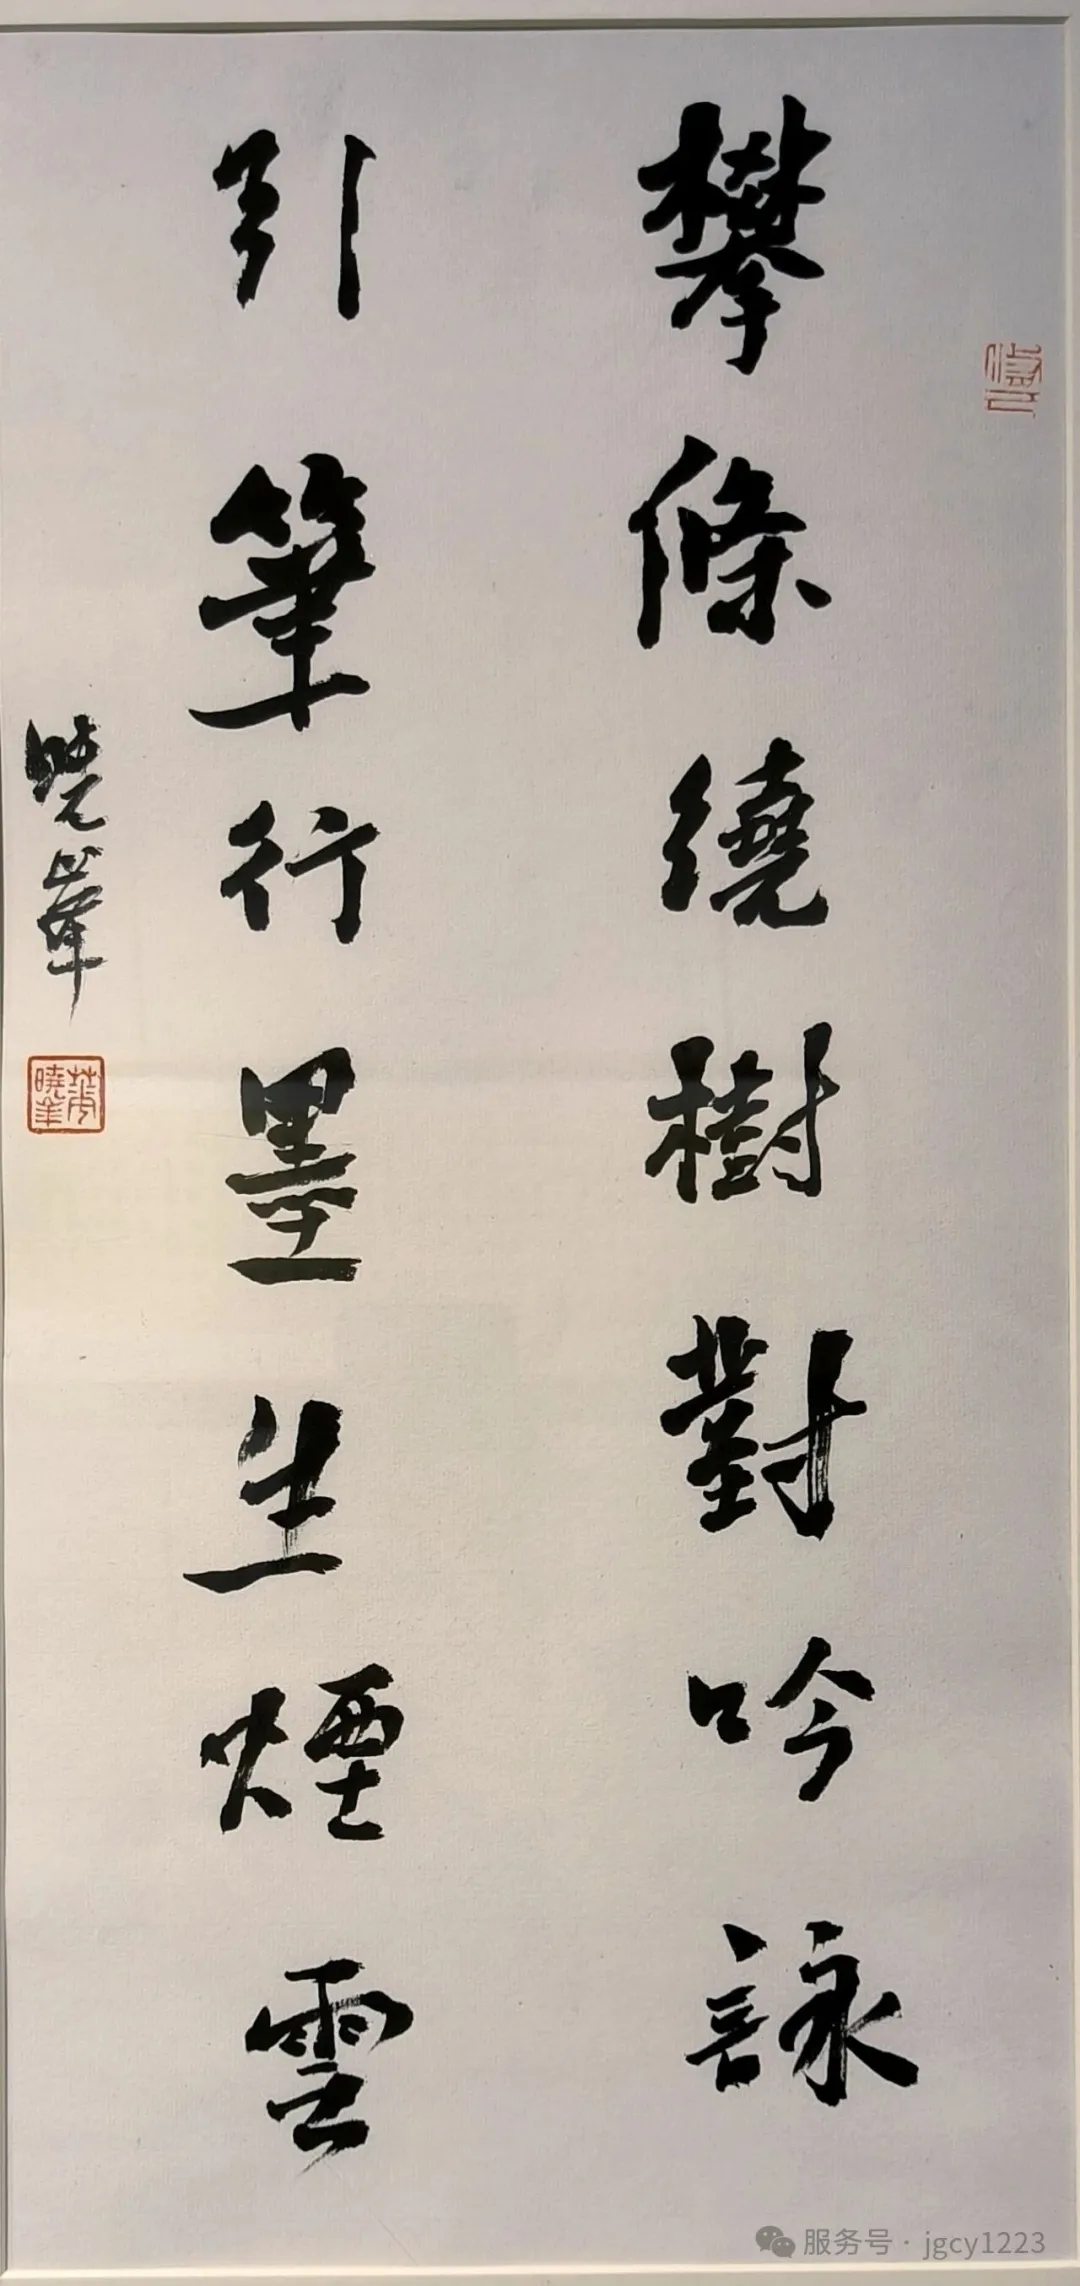 攀條繞樹對吟詠
引筆行墨生煙雲
曉華
服务号 · jgcy1223